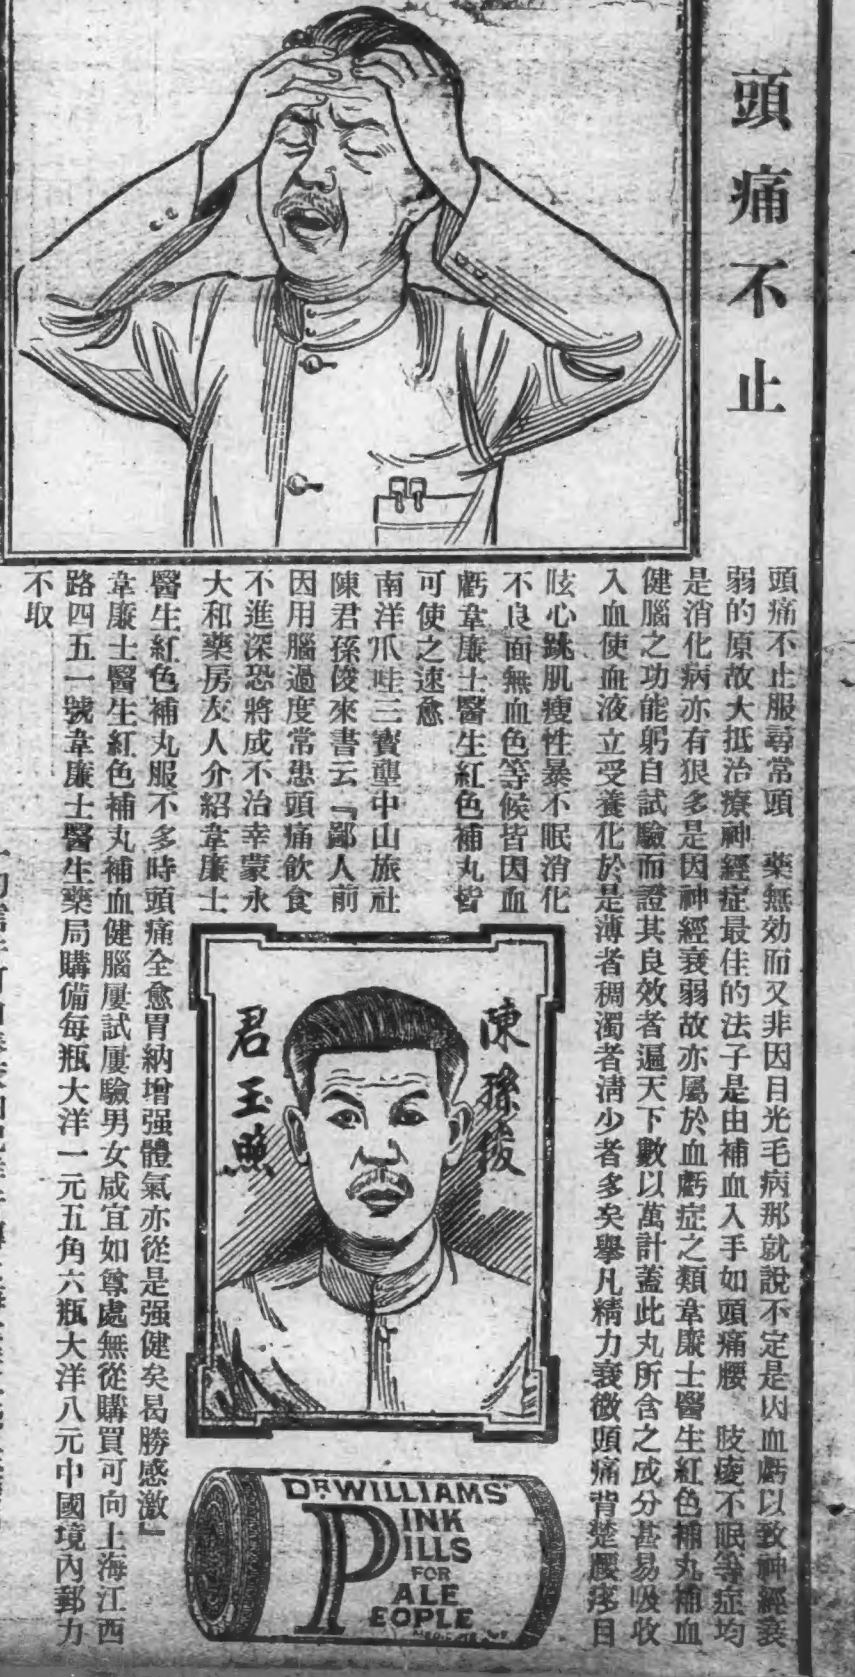 頭痛不止
頭痛不止服尋常頭 藥無効而又非因目光毛病那就說不定是因血虧以致神經衰
弱的原故大抵治療神經症最佳的法子是由補血入手如頭痛腰 肢痠不眠等症均
是消化病亦有狠多是因神經衰弱故亦屬於血虧症之類韋廉士醫生紅色補丸補血
健腦之功能躬自試驗而證其良效者遍天下數以萬計蓋此丸所含之成分甚易吸收
入血使血液立受養化於是薄者稠濁者清少者多矣舉凡精力衰微頭痛背楚腰痠目
眩心跳肌瘦性暴不眠消化
不良面無血色等候皆因血
虧韋廉士醫生紅色補丸皆
可使之速愈
南洋爪哇三寶壟中山旅社
陳君孫俊來書云『鄙人前
因用腦過度常患頭痛飲食
不進深恐將成不治幸蒙永
大和藥房友人介紹韋廉士
醫生紅色補丸服不多時頭痛全愈胃納增强體氣亦從是强健矣曷勝感激』
韋廉士醫生紅色補丸補血健腦屢試屢驗男女咸宜如尊處無從購買可向上海江西
路四五一號韋廉士醫生藥局購備每瓶大洋一元五角六瓶大洋八元中國境內郵力
不取
陳孫俊
君玉照
DR WILLIAMS'
PINK
PILLS
FOR
PALE
PEOPLE